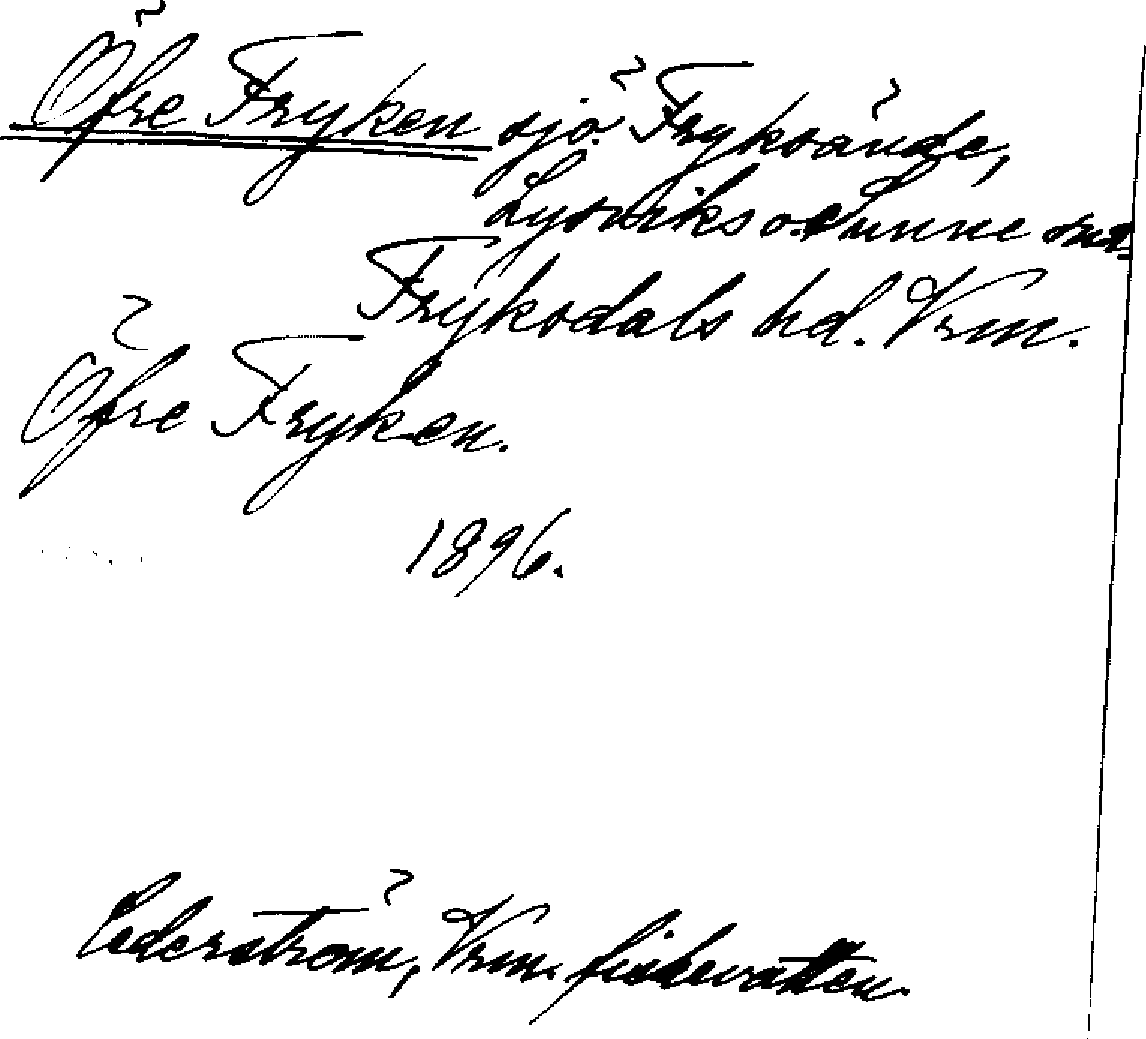 Öfre Fryken sjö. Fryksände,
Lysviks o. Sunne snr
Fryksdals hd. Vrm.
Öfre Fryken.
1896.
Cederström, Vrm. fiskevatten.